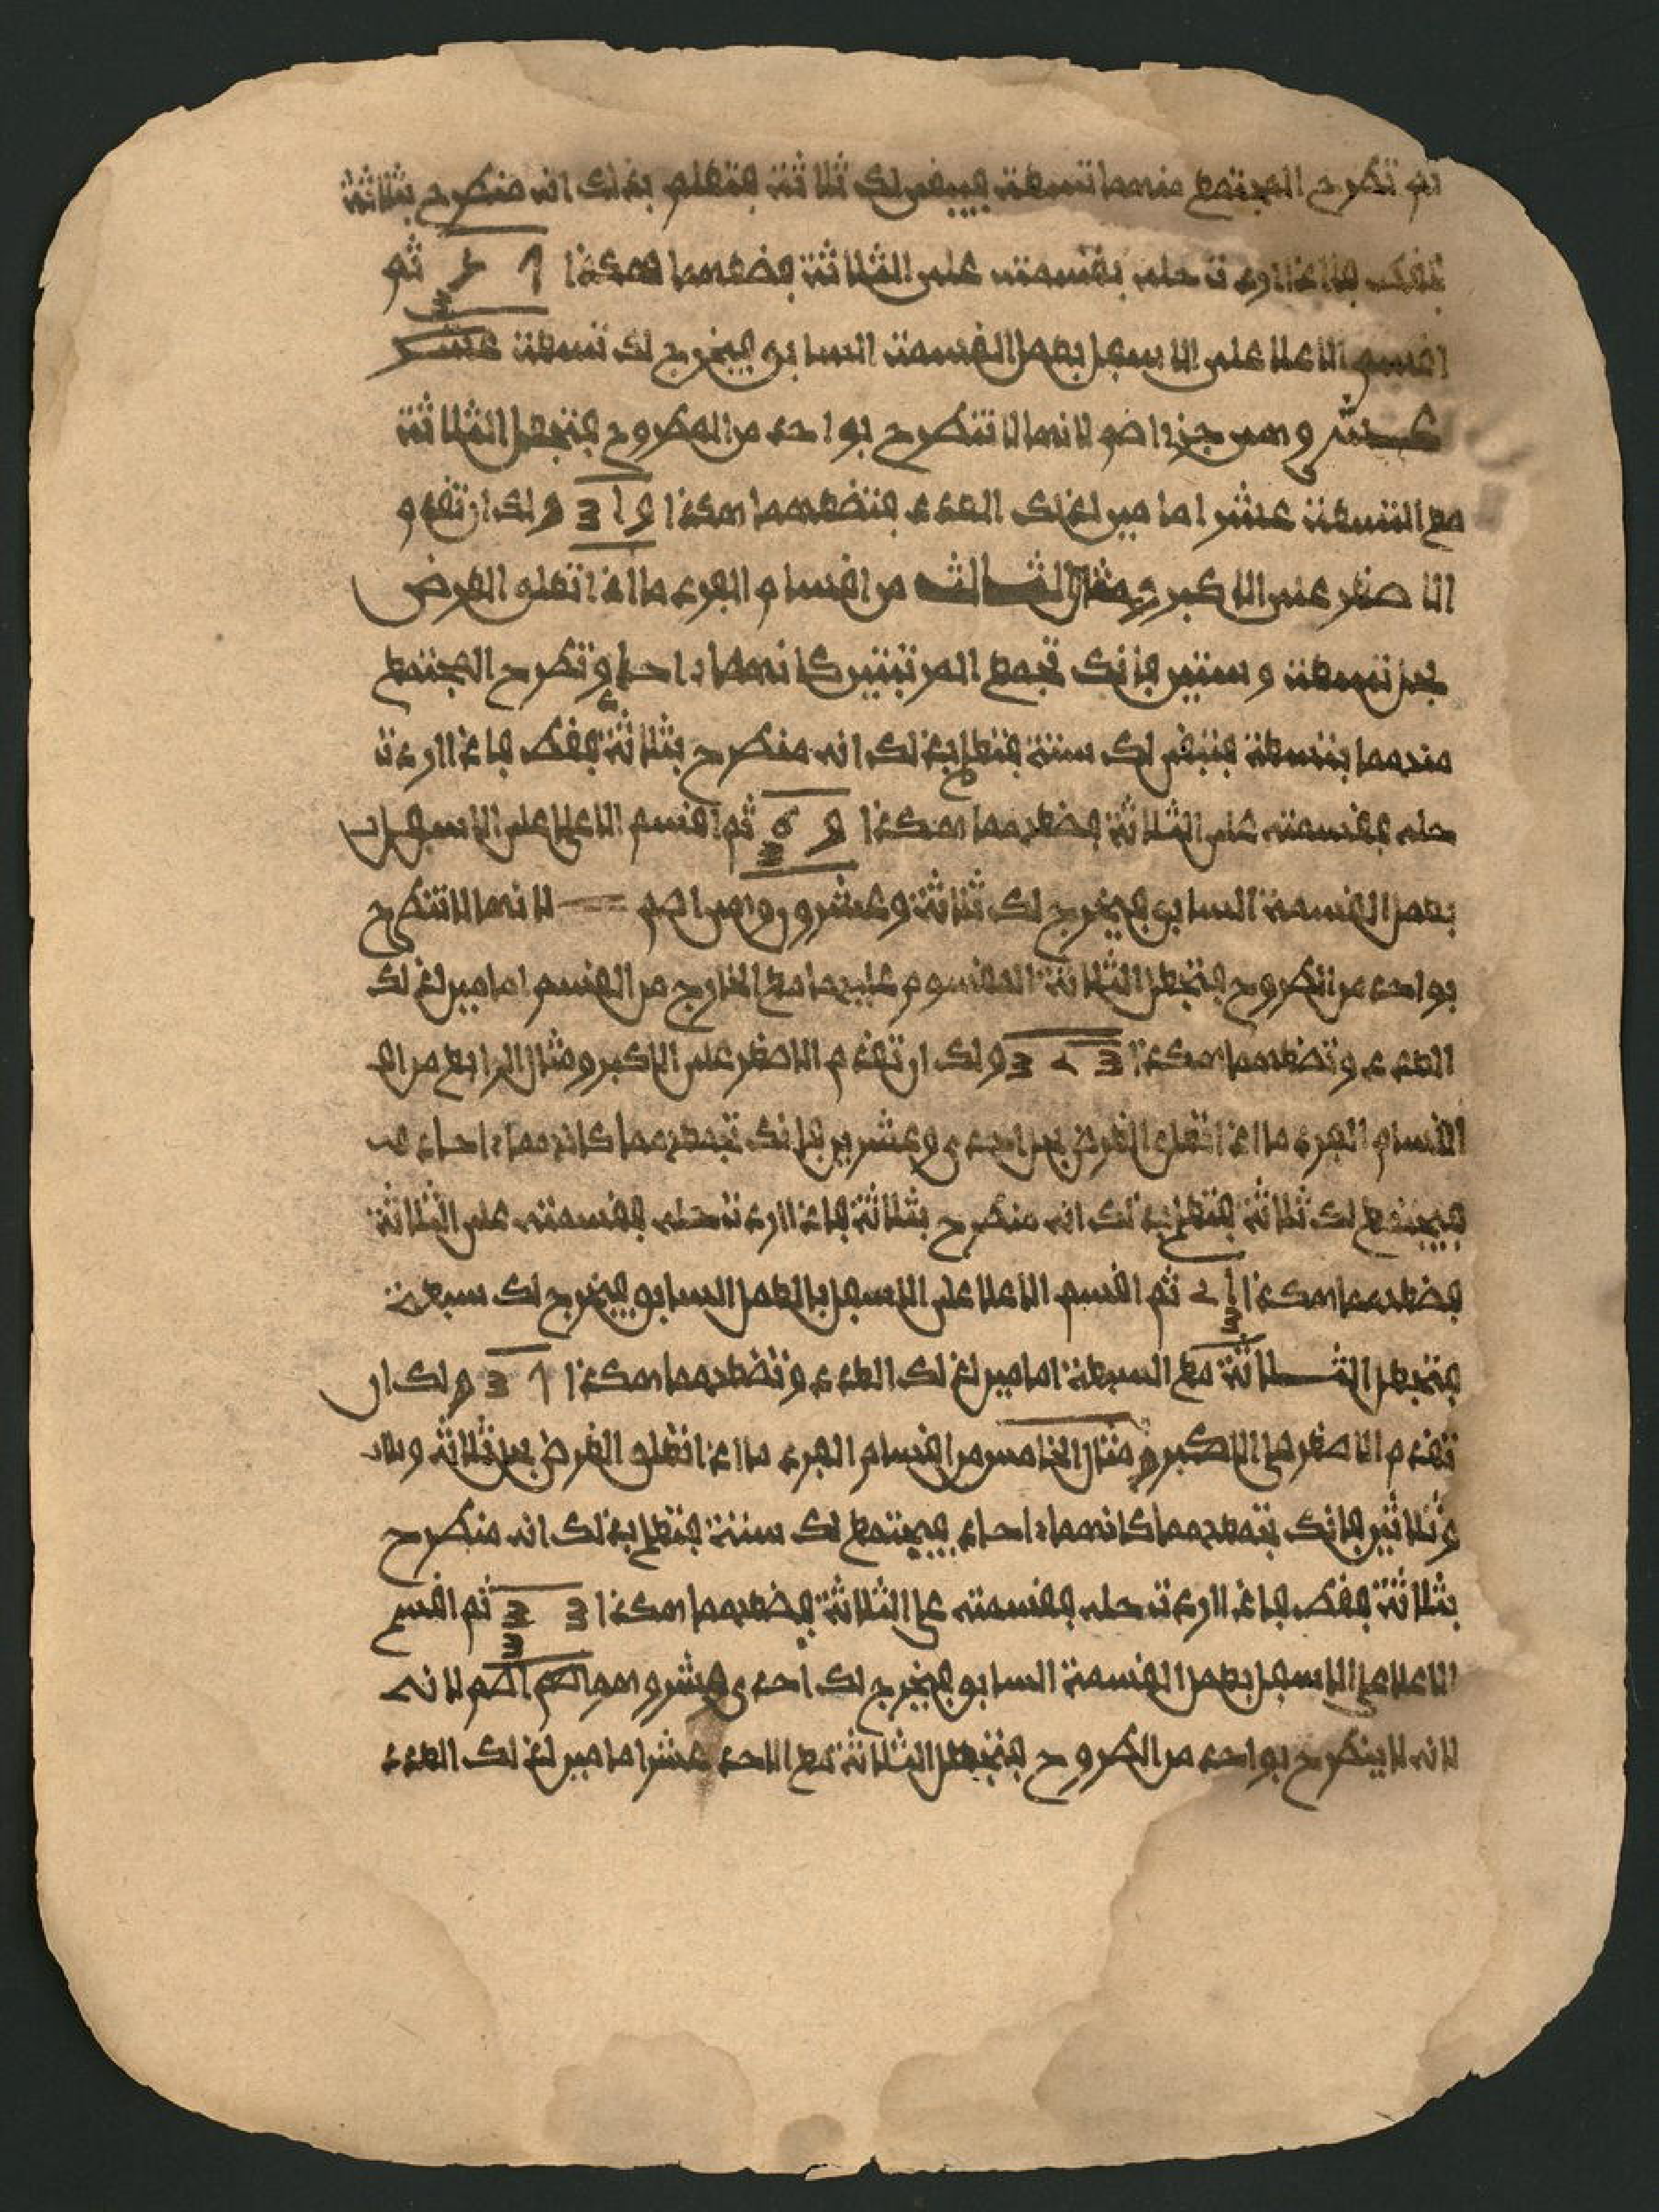 ثم تطرح المجتمع منهما تسعة فيبقى لك ثلاثة فتعلم بذلك انه منطرح بثلاثة
فقط فاذا اردت حله بقسمته على الثلاثة فضعهما هكذا ثم
اقسم الاعلا على الاسفل بعمل القسمة السابق فيخرج لك تسعة عشر
وهي جزء اصم لانها لا تنطرح بواحد من الطروح فتجعل الثلاثة
مع التسعة عشر امامين لذلك العدد فتضعهما هكذا 19 3 ولك ان تقدم
الاصغر على الاكبر ومثال الثالث من اقسام الفرد ما اذا قيل لو الفرض
تسعة وستين فإنك تجمع المرتبتين كانهما احاد وتطرح المجتمع
منهما بتسعة فتبقى لك ستة فتعلم بذلك انه منطرح بثلاثة فقط فاذا اردت
حله فقسمته على الثلاثة فضعهما هكذا 9 6 3 ثم اقسم الاعلا على الاسفل
بعمل القسمة السابق فيخرج لك ثلاثة وعشرون وهي اصم لانها لا تنطرح
بواحد من الطروح فتجعل الثلاثة المقسوم عليها مع الخارج من القسم امامين لذلك
العدد وتضعهما هكذا 3 2 3 ولك ان تقدم الاصغر على الاكبر ومثال الرابع من الا
الاقسام الفرد ما اذا الفرض واحدى وعشرين فإنك تجمعهما كانهما احاد
فيجتمع لك ثلاثة فتعلم بذلك انه منطرح بثلاثة فاذا اردت حله فقسمته على الثلاثة
فضعهما هكذا 1 2 3 ثم اقسم الاعلا على الاسفل بالعمل السابق فيخرج لك سبعة
فتجعل الثلاثة مع السبعة امامين لذلك العدد وتضعهما هكذا 3 ولك ان
تقدم الاصغر على الاكبر ومثال الخامس من اقسام الفرد ما اذا الفرض ثلاثة
وثلاثين فإنك تجمعهما كانهما احاد فيجتمع لك ستة فتعلم بذلك انه منطرح
بثلاثة فقط فاذا اردت حله فقسمته على الثلاثة فضعهما هكذا 3 3 3 ثم اقسم
الاعلا على الاسفل بعمل القسمة السابق فيخرج لك احدى عشر وهو اصم اصم لانه
لانه لا ينطرح بواحد من الطروح فتجعل الثلاثة مع الاحد عشر امامين لذلك العدد